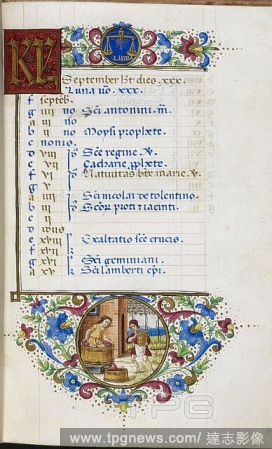 LIBRA
KL
September hst dies .xxx.
Luna v̄o .xxx.
f septēb.
g iiii no Sc̄i antonini m̄.
a iii no
b ii no Moysi prophete.
c nonio.
d viii Sc̄e regine v̄.
e vii Zacharie pphete.
f vi Natiuitas bt̄e marie v̄.
g v
a iiii Sc̄i nicolai de tolentino.
b iii Sc̄oꝝ proti et iacinti.
c ii
d idus
e xviii k Exaltatio sc̄e crucis.
f xvii k
g xvi k Sc̄i geminiani.
a xv k Sc̄i lamberti ep̄i.
TPG
www.tpgnews.com/ 達志影像